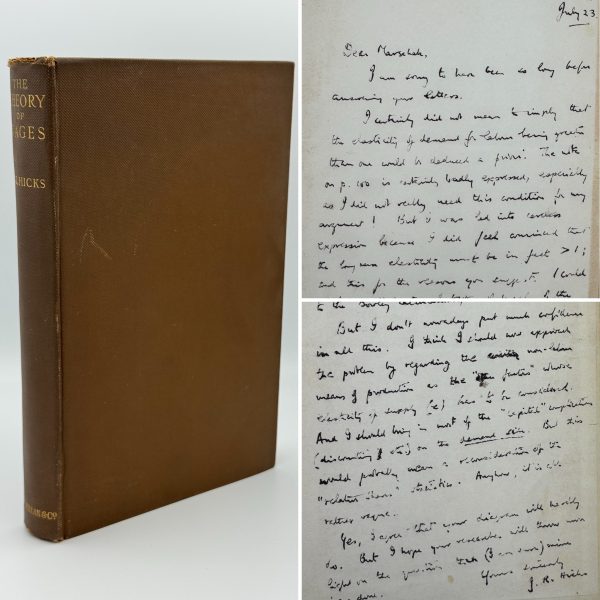 THE
THEORY
OF
WAGES
HICKS
MILLAN & Co
July 23.
Dear Marschak,
I am sorry to have been so long before
answering your letters.
I certainly did not mean to imply that
the elasticity of demand for labour being greater
than one could be deduced a priori. The note
on p. 100 is certainly badly expressed, especially
as I did not really need this condition for my
argument! But I was led into careless
expression because I did feel convinced that
the long run elasticity must be in fact > 1;
and this for the reasons you suggest. I could
to the
But I don't nowadays put much confidence
in all this. I think I should now approach
the problem by regarding the non-labour
means of production as the "factor" whose
elasticity of supply (e) has to be considered.
And I should bring in most of the "capital" complications
(discounting etc) on the demand side. But this
would probably mean a reconsideration of the
"relative share" statistics. Anyhow, it is all
rather vague.
Yes, I agree that your diagram will hardly
do. But I hope your researches will throw more
light on the question than (I am sure) mine
have done.
Yours sincerely
J. R. Hicks